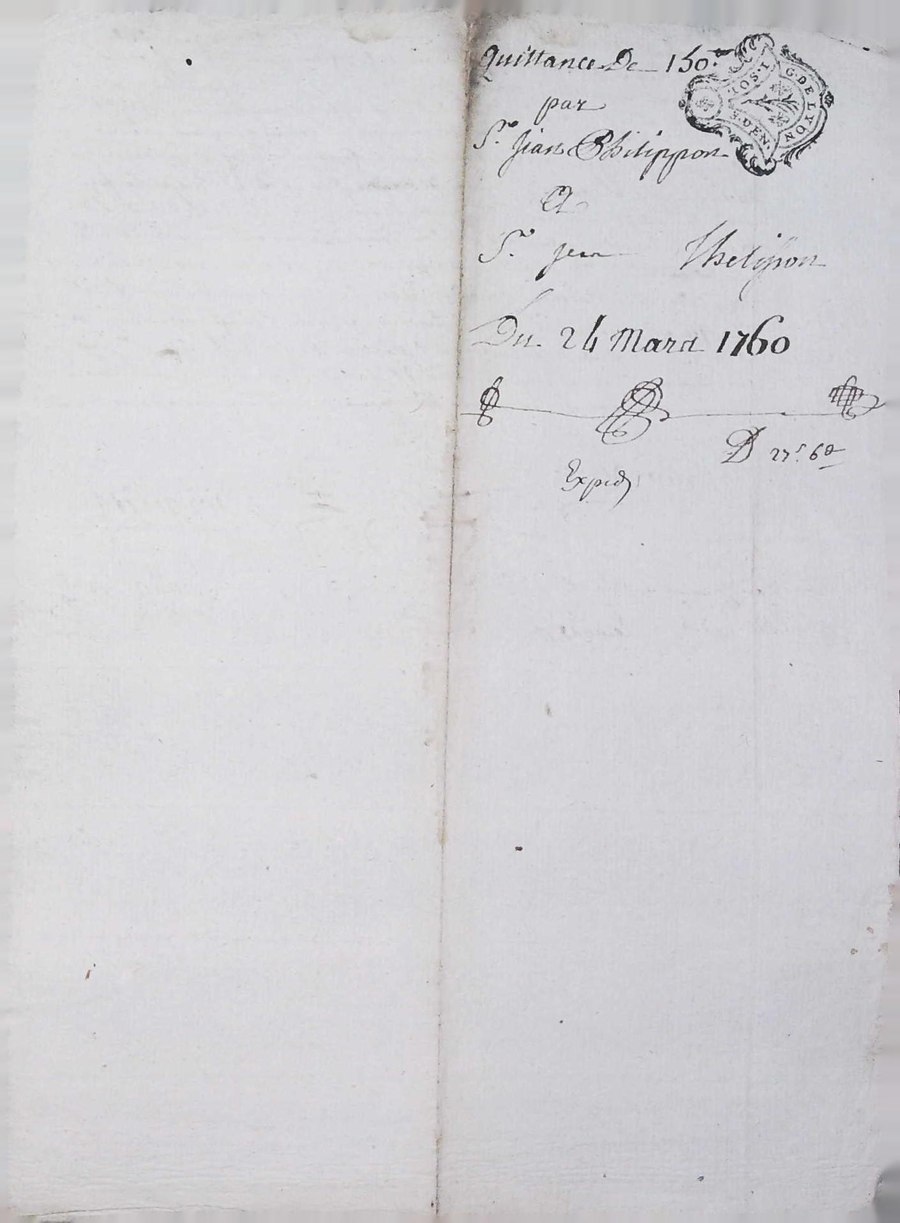 Quittance De 150#
par
Sr. Jean Philippon
A
Sr. jean Phelippon
Du 24 Mars 1760
D 27s 6d
Exped
G. DE LYON